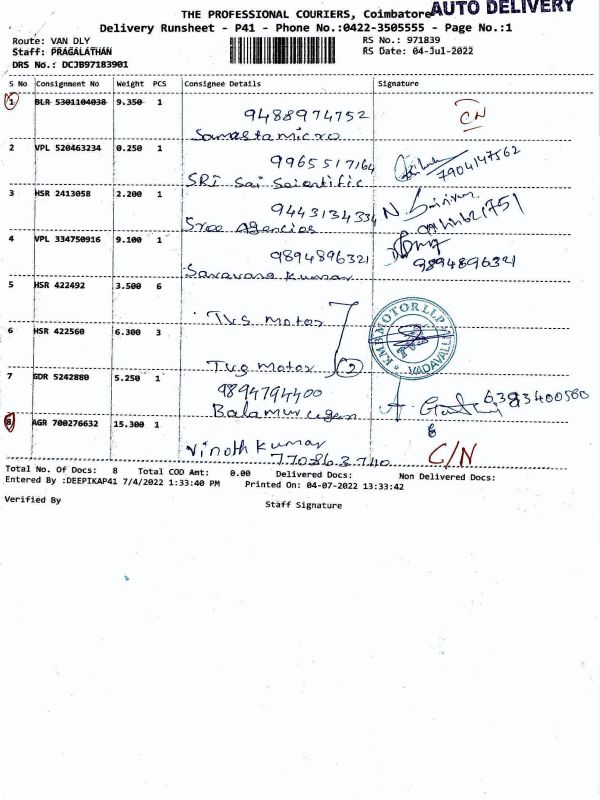 THE PROFESSIONAL COURIERS, Coimbatore AUTO DELIVERY
Delivery Runsheet - P41 - Phone No.:0422-3505555 - Page No.:1
Route: VAN DLY RS No.: 971839
Staff: PRAGALATHAN RS Date: 04-Jul-2022
DRS No.: DCJB97183901
S No Consignment No Weight PCS Consignee Details Signature
1 BLR 5301104038 9.350 1 9488974752 CN
Samastamicro
2 VPL 520463234 0.250 1 9965517164 7904147562
SRI Sai Scientific
3 HSR 2413058 2.200 1 9443134334 N.
Sree Agencies
4 VPL 334750916 9.100 1 9894896321 9894896321
Saravana kumar
5 HSR 422492 3.500 6
TVS motor KMB MOTOR LLP VADAVALLI
6 HSR 422560 6.300 3
TVS motor 2
7 GDR 5242880 5.250 1 9894794400 6383400580
Balamurugan
8 AGR 700276632 15.300 1
Vinoth kumar C/N
7708637140
Total No. Of Docs: 8 Total COD Amt: 0.00 Delivered Docs: Non Delivered Docs:
Entered By :DEEPIKAP41 7/4/2022 1:33:40 PM Printed On: 04-07-2022 13:33:42
Verified By Staff Signature